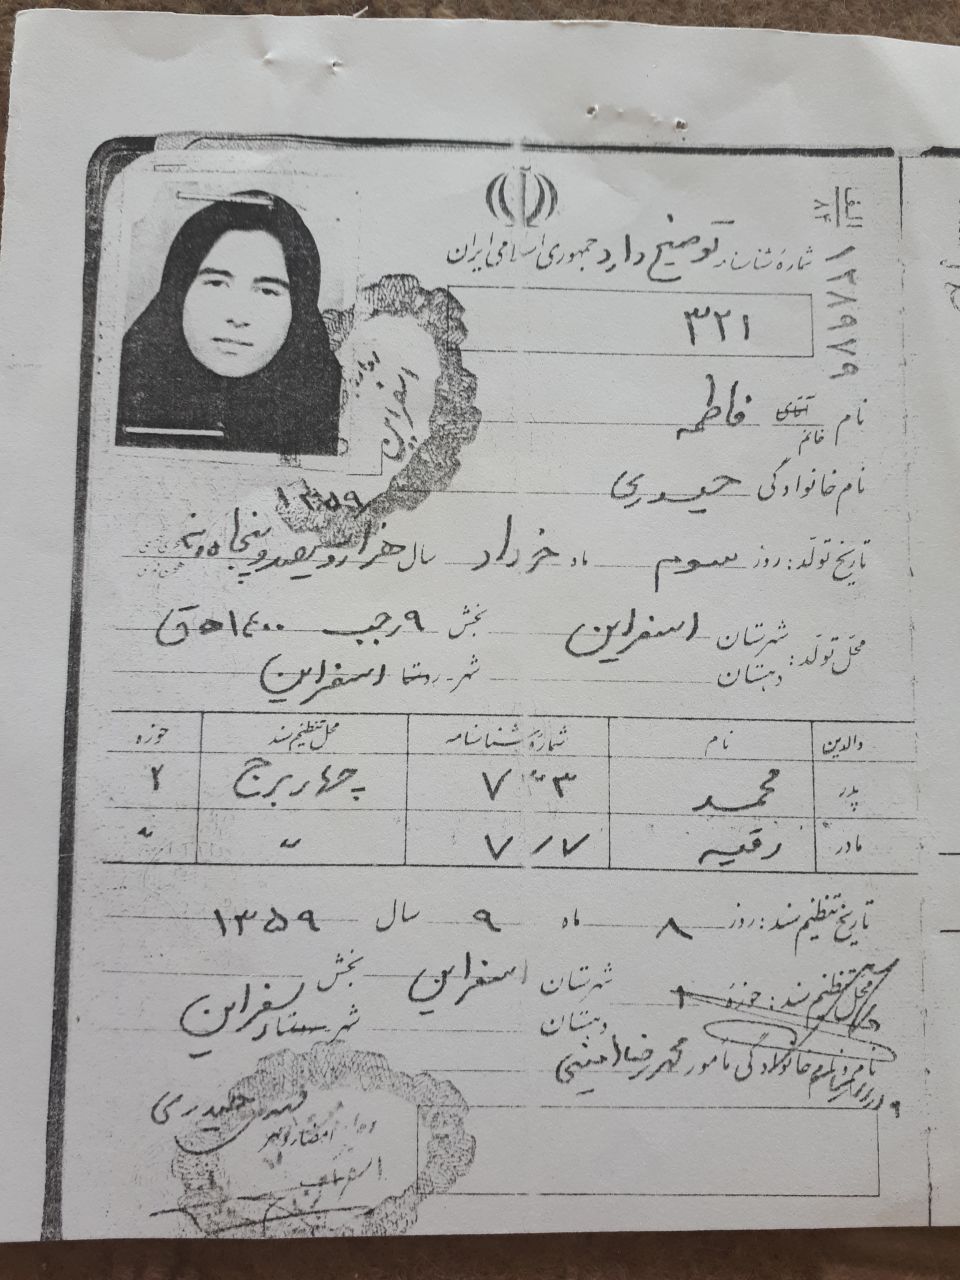 الف
۸۴
۱۳۸۹۷۹
جمهوری اسلامی ایران
شمارهٔ شناسنامه توضیح دارد
۳۲۱
نام آقای خانم فاطمه
نام خانوادگی حیدری
۱۳۵۹
تاریخ تولّد: روز سوم ماه خرداد سال هزار و سیصد و پنجاه و نه
محلّ تولّد: شهرستان اسفراین بخش ۹ رجب ۱۴۰۰ ه ق
دهستان شهر - روستا اسفراین
والدین نام شمارهٔ شناسنامه محل تنظیم سند حوزه
پدر محمد ۷۳ چهار برج ۲
مادر رقیه ۷۰۷ " "
تاریخ تنظیم سند: روز ۸ ماه ۹ سال ۱۳۵۹
محلّ تنظیم سند: حوزهٔ ۱ شهرستان اسفراین بخش
دهستان شهر اسفراین
نام و نام خانوادگی مامور محمدرضا امینی
حیدری
امضا و مهر